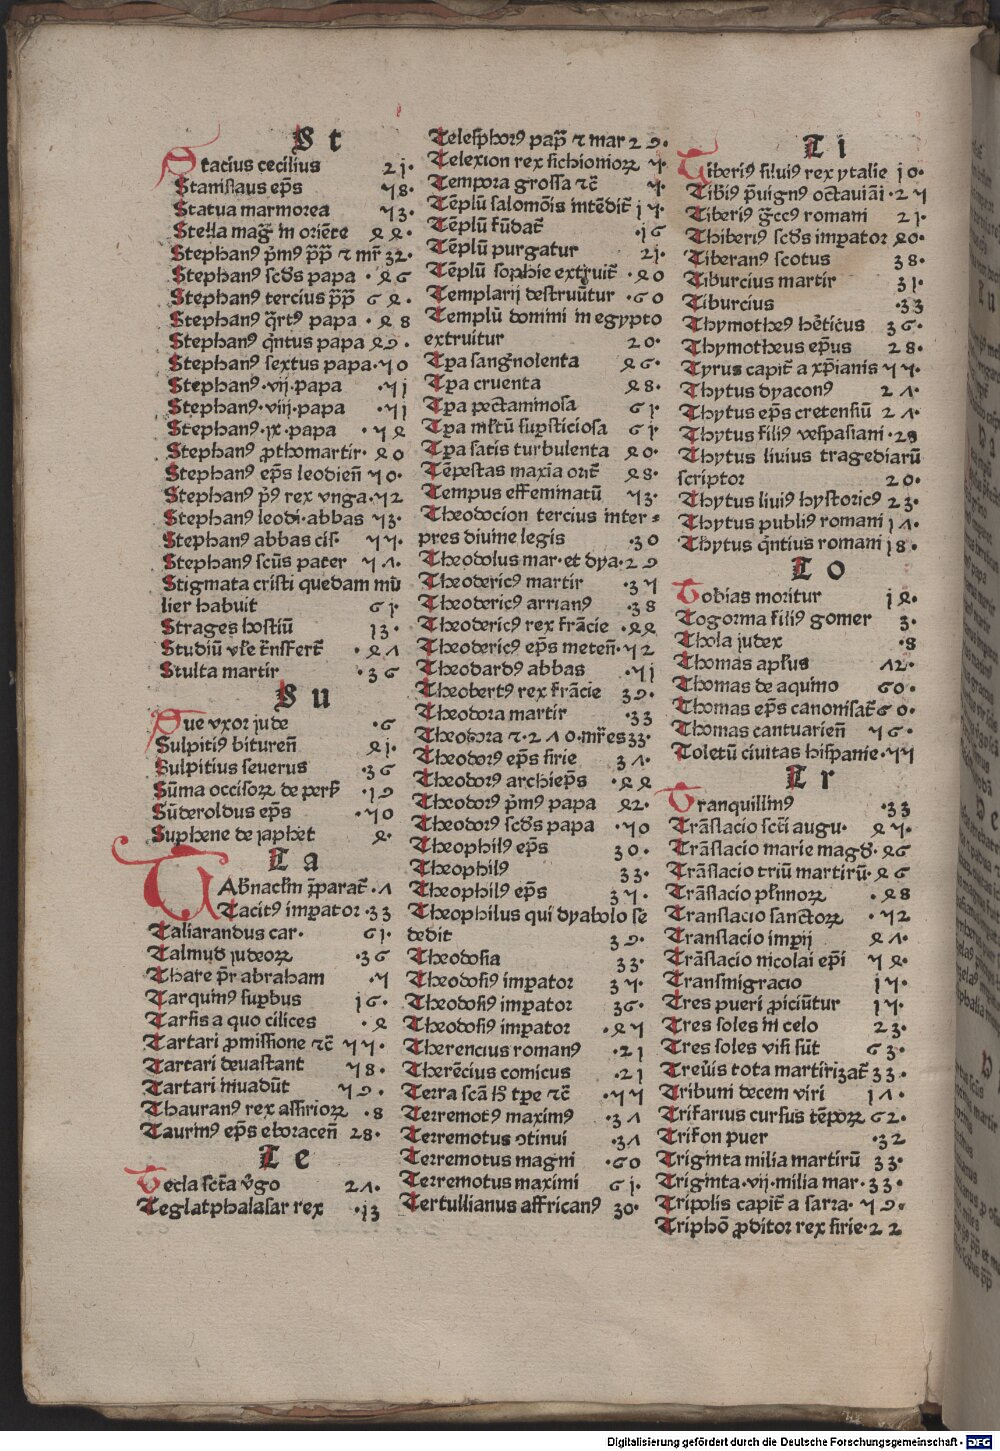 St
Stacius cecilius 21.
Stanislaus ep̄s 58.
Statua marmorea 53.
Stella mag̅ in oriēte 44.
Stephanꝰ p̄mꝰ p̄p̄ ⁊ mr̄ 32.
Stephanꝰ scd̄s papa .46
Stephanꝰ tercius p̄p̄ 64.
Stephanꝰ q̄rtꝰ papa .48
Stephanꝰ q̄ntus papa 49.
Stephanꝰ sextus papa.50
Stephanꝰ.vij.papa .51
Stephanꝰ.viij.papa .51
Stephanꝰ.ix.papa .54
Stephanꝰ ꝓthomartir.40
Stephanꝰ ep̄s leodien̄ 50.
Stephanꝰ p̄ꝰ rex vnga.52
Stephanꝰ leodi.abbas 53.
Stephanꝰ abbas cis. 55.
Stephanꝰ scūs pater 57.
Stigmata cristi quedam mu
lier habuit 61.
Strages hostiū 13.
Studiū vl̄e t̄nsfert̄ .47
Stulta martir .36
Su
Sue vxor jude .6
Sulpitiꝰ bituren̄ 41.
Sulpitius seuerus .36
Sūma occisoꝝ de pers̄ .19
Sūderoldus ep̄s .50
Suphene de japhet 4.
Ta
TAbn̄aclm̄ p̄parat̄.7
Tacitꝰ imꝑator.33
Taliarandus car. 61.
Talmud judeoꝝ .36
Thare p̄r abraham .5
Tarquinꝰ suꝑbus 16.
Tarsis a quo cilices .4
Tartari ꝓmissione ⁊c̄ 55.
Tartari deuastant 58.
Tartari inuadūt 59.
Thauranꝰ rex assirioꝝ .8
Taurinꝰ ep̄s eboracen̄ 28.
Te
Tecla sct̄a v̄go 27.
Teglatphalasar rex .13
Telesphorꝰ pap̄ ⁊ mar 29.
Telexion rex sichionioꝝ 5.
Tempora grossa ⁊c̄ 5.
Tēplū salomōis intēdit̄ 15.
Tēplū fūdat̄ .16
Tēplū purgatur 21.
Tēplū sophie extruit̄ .40
Templarij destruūtur .60
Templū domini in egypto
extruitur 20.
Tr̄a sang̅nolenta 46.
Tr̄a cruenta 48.
Tr̄a peccaminosa 61.
Tr̄a ml̄tū suꝑsticiosa 61.
Tr̄a satis turbulenta 40.
Tēpestas maxīa orit̄ 48.
Tempus effeminatū 53.
Theodocion tercius inter=
pres diuine legis .30
Theodolus mar.et dya.29
Theodericꝰ martir .35
Theodericꝰ arrianꝰ .38
Theodericꝰ rex frācie .44
Theodericꝰ ep̄s meten̄.52
Theodardꝰ abbas .51
Theobertꝰ rex frācie 39.
Theodora martir .33
Theodora ⁊.270.mr̄es 33.
Theodorꝰ ep̄s sirie 37.
Theodorꝰ archiep̄s .44
Theodorꝰ p̄mꝰ papa 42.
Theodorꝰ scd̄s papa .50
Theophilꝰ ep̄s 30.
Theophilꝰ 33.
Theophilꝰ ep̄s 35.
Theophilus qui dyabolo se
dedit 39.
Theodosia 33.
Theodosiꝰ imꝑator 35.
Theodosiꝰ imꝑator 36.
Theodosiꝰ imꝑator .45
Therencius romanꝰ .21
Therēcius comicus .21
Terra scā ꝉs̄ tꝑe ⁊c̄ .55
Terremotꝰ maximꝰ .37
Terremotus ɔtinui .37
Terremotus magni .60
Terremotus maximi 61.
Tertullianus affricanꝰ 30.
Ti
Tiberiꝰ siluiꝰ rex ytalie 10.
Tibꝰiꝰ p̄uignꝰ octauiāi.25
Tiberiꝰ g̅ccꝰ romani 21.
Thiberiꝰ scd̄s imꝑator 40.
Tiberanꝰ scotus 38.
Tiburcius martir 31.
Tiburcius .33
Thymotheꝰ hēticus 36.
Thymotheus ep̄us 28.
Tyrus capit̄ a xp̄ianis 55.
Thytus dyaconꝰ 27.
Thytus ep̄s cretensiū 27.
Thytus filiꝰ vespasiani.28
Thytus liuius tragediarū
scriptor 20.
Thytus liuiꝰ hystoricꝰ 23.
Thytus publiꝰ romani 17.
Thytus q̄ntius romani 18.
To
Tobias moritur 14.
Togorma filiꝰ gomer 3.
Thola judex .8
Thomas apl̄us 72.
Thomas de aquino 60.
Thomas ep̄s canonisat̄ 60.
Thomas cantuarien̄ 56.
Toletū ciuitas hispanie.55
Tr
Tranquillinꝰ .33
Trāslacio scti̅ augu. 45.
Trāslacio marie magd̄. 46
Trāslacio triū martirū.46
Trāslacio pl̄rimoꝝ .48
Translacio sanctoꝝ .52
Translacio imꝑij 47.
Trāslacio nicolai ep̄i 54.
Transmigracio 15.
Tres pueri ꝓiciūtur 15.
Tres soles in celo 23.
Tres soles visi sūt 63.
Treūis tota martirizat̄ 33.
Tribuni decem viri 17.
Trifarius cursus tēpoꝝ 62.
Trifon puer .32
Triginta milia martirū 33.
Triginta.vij.milia mar.33.
Tripolis capit̄ a sarra. 59.
Triphō ꝓditor rex sirie.22
Digitalisierung gefördert durch die Deutsche Forschungsgemeinschaft - DFG